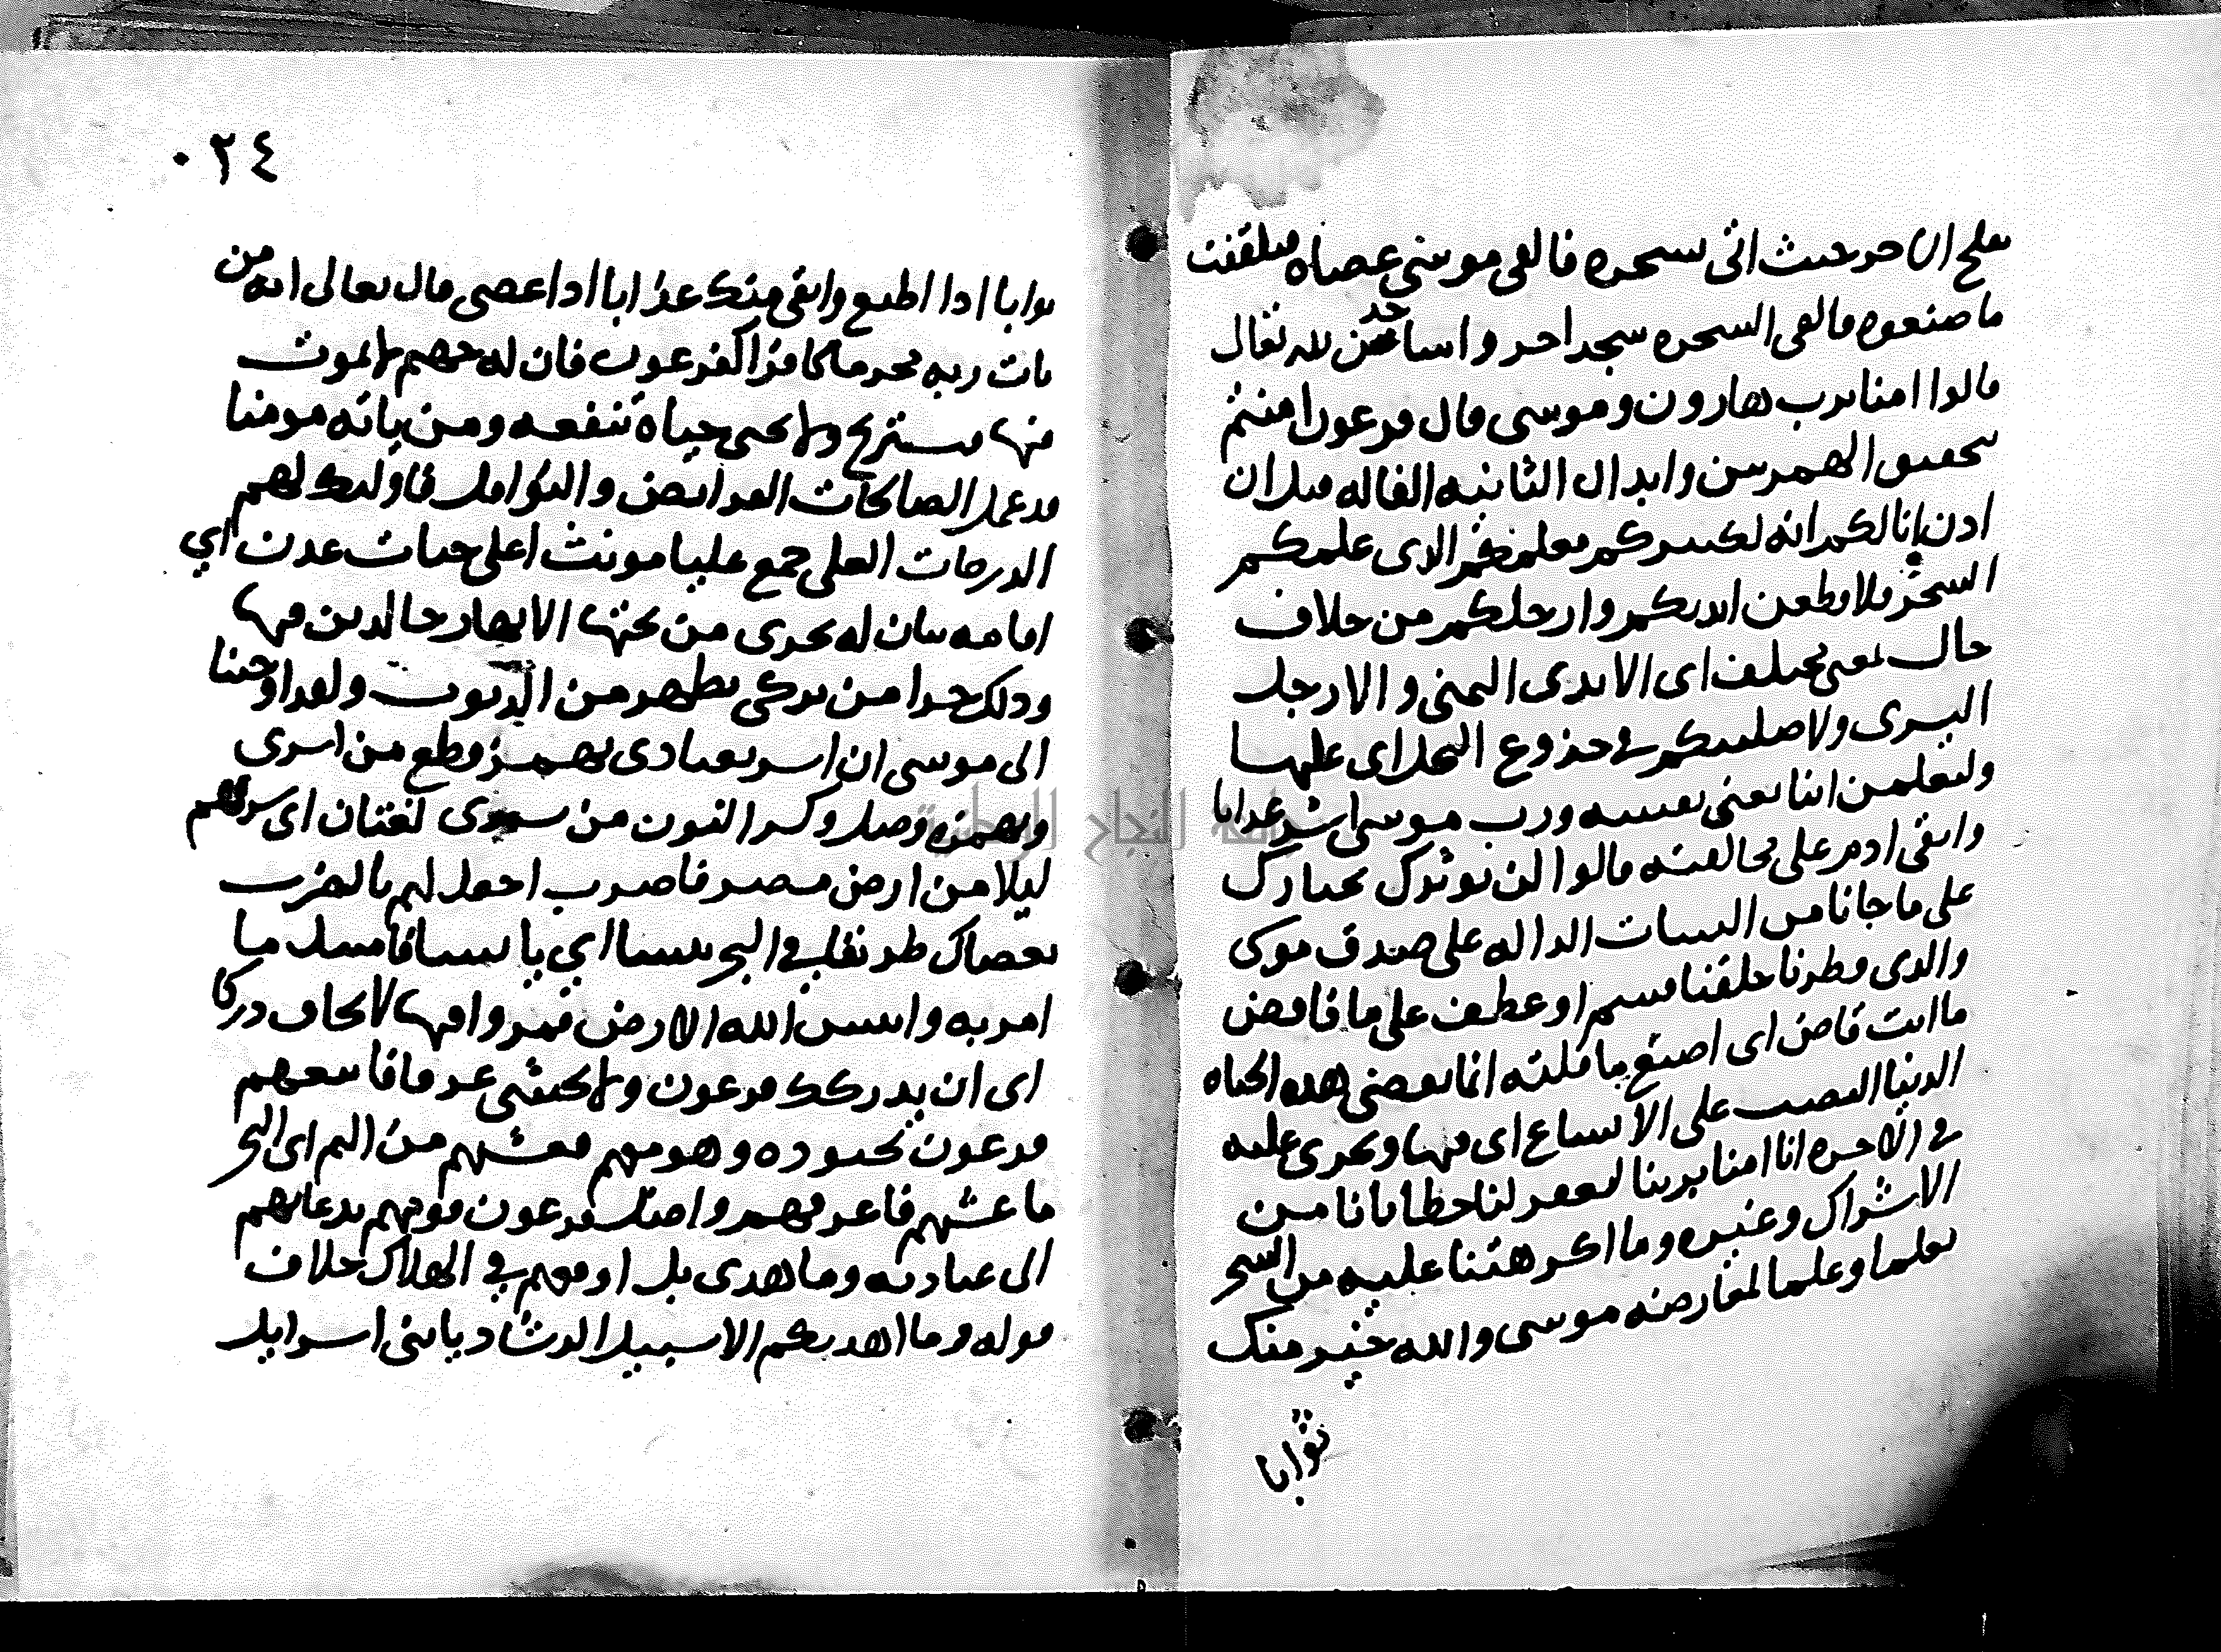 يفلح الساحر حيث اتى بسحره فالقى موسى عصاه فتلقفت
ما صنعوه فالقى السحره سجدا خروا ساجدين لله تعالى
قالوا امنا برب هارون وموسى قال فرعون امنتم
بتحقيق الهمزتين وابدال الثانيه الفا له قبل ان
اذن انا لكم انه لكبيركم معلمكم الذى علمكم
السحر فلاقطعن ايديكم وارجلكم من خلاف
حال بمعنى مختلف اى الايدى اليمنى والارجل
اليسرى ولاصلبنكم فى جذوع النخل اى عليها
ولتعلمن اينا يعنى نفسه ورب موسى اشد عذابا
وابقى ادوم على مخالفته قالوا لن نوثرك نختارك
على ما جانا من البينات الداله على صدق موسى
والذى فطرنا خلقنا قسم او عطف على ما فاقض
ما انت قاض اى اصنع ما قلته انما تقضى هذه الحياه
الدنيا النصب على الاتساع اى فيها وتجزى عليه
فى الاخره انا امنا بربنا ليغفر لنا خطايانا من
الاشراك وغيره وما اكرهتنا عليه من السحر
تعلما وعملا لمعارضه موسى والله خير منك
ثوابا
٠٢٤
ثوابا اذا اطيع وابقى منك عذابا اذا عصى قال تعالى انه من
يات ربه مجرما كافرا كفرعون فان له جهنم لا يموت
فيها فيستريح ولا يحيى حياة تنفعه ومن ياته مومنا
قد عمل الصالحات الفرايض والنوافل فاوليك لهم
الدرجات العلى جمع عليا مونث اعلى جنات عدن اي
اقامه بيان له تجرى من تحتها الانهار خالدين فيها
وذلك جزا من تزكى تطهر من الذنوب ولقد اوحينا
الى موسى ان اسر بعبادى بهمزة قطع من اسرى
وبهمزه وصل وكسر النون من سرى لغتان اى سر بهم
ليلا من ارض مصر فاضرب اجعل لهم بالضرب
بعصاك طريقا فى البحر يبسا اي يابسا فامتثل ما
امر به وايبس الله الارض فمروا فيها لا تخاف دركا
اى ان يدركك فرعون ولا تخشى غرقا فاتبعهم
فرعون بجنوده وهو معهم فغشيهم من اليم اى البحر
ما غشيهم فاغرقهم واضل فرعون قومهم بدعايهم
الى عبادته وما هدى بل اوقعهم فى الهلاك خلاف
قوله وما اهديكم الا سبيل الرشاد يا بنى اسرايل